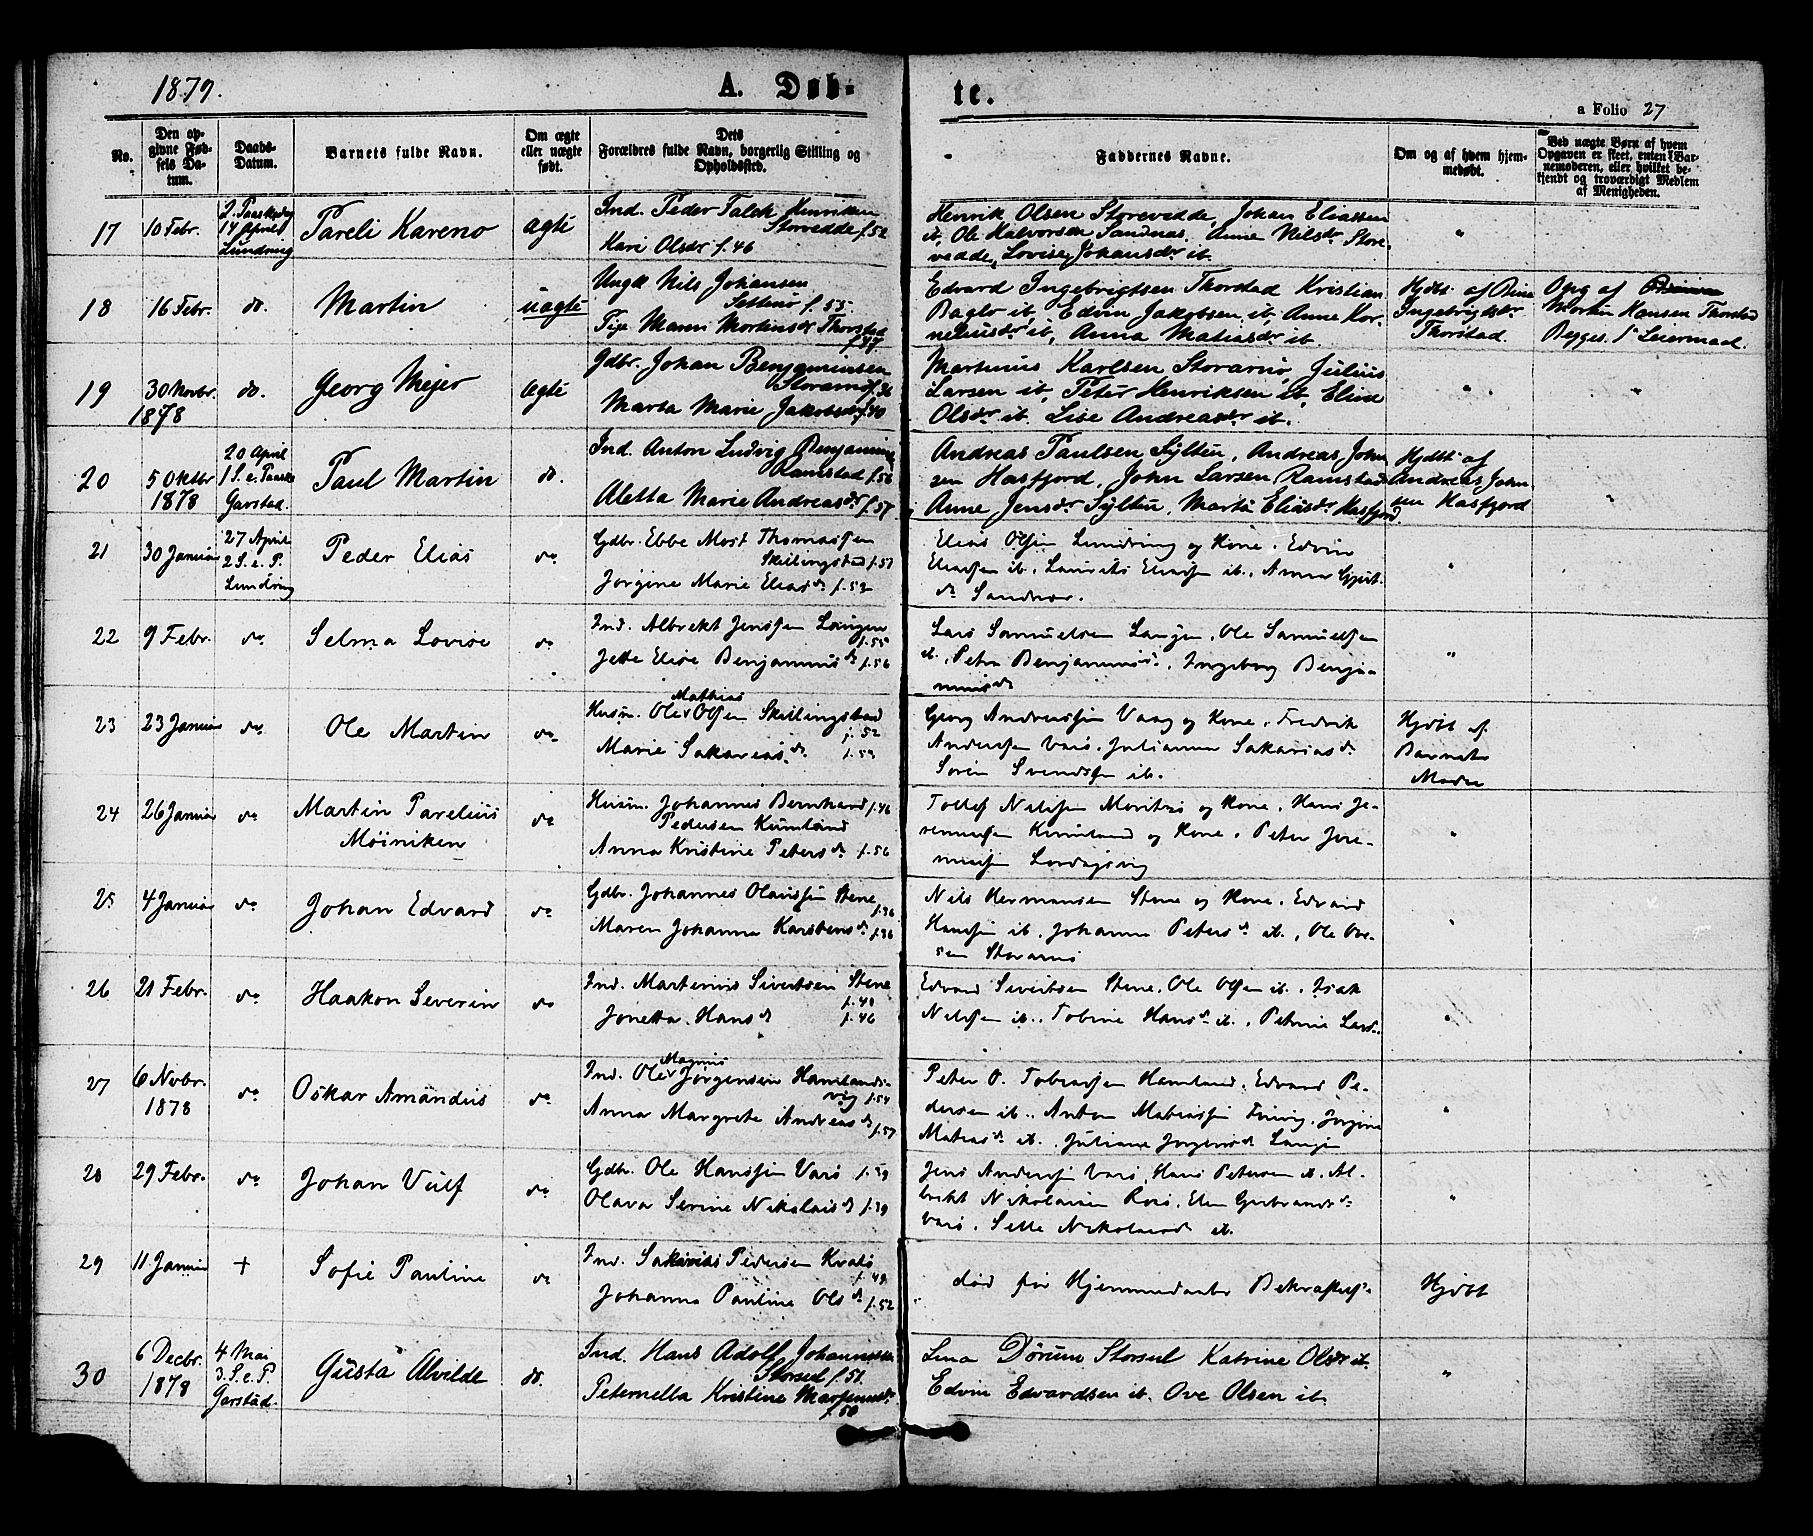 1879.
A. Døb-
te.
a Folio 27
No.
Den op-
givne Fød-
sels Da-
tum.
Daabs-
Datum.
Barnets fulde Navn.
Om ægte
eller uægte
født.
Dets
Forældres fulde Navn, borgerlig Stilling og
Opholdssted.
Faddernes Navne.
Om og af hvem hjem-
medøbt.
Ved uægte Børn af hvem
Opgaven er skeet, enten Bar-
nemoderen, eller hvilket be-
kjendt og troværdigt Medlem
af Menigheden.
17
10 Febr.
2. Paaskedag
14 April
Lundring
Pareli Kareno
ægte
Ind. Peder Falck Henriksen
Storvedde f. 52
Kari Olsdr f. 46
Henrik Olsen Storevedde, Johan Eliassen
ib, Ole Halvorsen Sandnæs. Anne Nilsdr Store-
vedde, Lovise Johansdr ib.
"
18
16 Febr.
do.
Martin
uægte
Ungk Nils Johansen
f. 55
Pige Maren Mortinsdr Thorstad
f. 57
Edvard Ingebrigtsen Thorstad Kristian
ib, Edvin Jakobsen ib, Anne Kor-
neliusdr ib, Anna Matiasdr ib.
Hjdbt. af
Ingebrigtsdr
Thorstad.
Opg af
Morten Hansen Thorstad
Begges 1ste Leiermaal.
19
30 Novbr.
1878
do.
Georg Mejer
ægte
Gdbr. Johan Benjaminsen
Storarnø f. 36
Marta Marie Jakobsdr f. 40
Martinus Karlsen Storarnø, Julius
Larsen ib, Peter Henriksen ib, Eline
Olsdr ib. Lise Andreasdr ib.
"
"
20
5 Oktbr
1878
20 April
1 S. e. Paaske
Garstad.
Paul Martin
do.
Ind. Anton Ludvig Benjamins
Ramstad f. 56
Aletta Marie Andreasdr f. 57
Andreas Paulsen Sylten, Andreas John
sen Hasfjord, John Larsen Ramstad
Anne Jensdr Sylten, Marta Eliasdr Hasfjord.
Hjdbt. af
Andreas John
sen Hasfjord
"
21
30 Januar
27 April
2 S. e. P.
Lundring
Peder Elias
do
Gdbr. Ebbe Most Thomassen
Skillingstad f. 57
Jørgine Marie Eliasdr f. 52
Elias Olsen Lundring og Kone. Edvin
Eliassen ib. Laurits Eliassen ib., Anna
dr Sandnæs.
"
22
9 Febr.
do
Selma Lovise
do
Ind. Albrekt Jenssen Langøen
f. 55
Jette Elise Benjaminsdr f. 56
Lars Samuelsen Langøen. Ole Samuelsen
ib. Petra Benjaminsdr. Ingeborg Benja-
minsdr
"
23
23 Januar
do
Ole Martin
do
Mathias
Husm. Ole Olsen Skillingstad
f. 52
Marie Sakariasdr f. 52
Georg Andreassen Vaag og Kone. Fredrik
Andersen Varø. Julianna Sakariasdr
Søren Svendsen ib.
Hjdbt af
Barnets
Moder
24
26 Januar
do
Martin Parelius
Møiniken
do
Husm. Johannes Bernhard f. 46
Pedersen Kumland
Anna Kristine Petersdr f. 56
Tollef Nilssen Moritsø og Kone. Hans Je-
remiassen Kumland og Kone. Peter Jere-
miassen
"
25
4 Januar
do
Johan Edvard
do
Gdbr. Johannes Olaussen Stene f. 36
Maren Johanna Karstensdr f. 36
Nils Hermansen Stene og Kone. Edvard
Hanssen ib. Johanna Petersdr ib., Ole
sen Storarnø
"
26
21 Febr.
do
Haakon Severin
do
Ind. Martinius Sivertsen Stene
f. 48
Jonetta Hansdr f. 46
Edvard Sivertsen Stene. Ole Olsen ib. Isak
Nilssen ib. Tobine Hansdr ib. Petrine Larsdr.
"
27
6 Novbr.
1878
do
Oskar Amandus
do
Magnus
Ind. Ole Jørgensen Hamlands-
vig f. 54
Anna Margrete Andreasdr f. 57
Peter O. Tobiassen Hamland. Edvard Pe-
dersen ib. Anton Matiassen Finvig. Jørgine
Matiasdr ib. Juliane Jørgensdr Langø
"
28
29 Febr.
do
Johan Vulf
do
Gdbr. Ole Hanssen Varø f. 59
Olava Serine Nikolaisdr f. 39
Jens Andersen Varø. Hans Petersen ib. Al-
brikt Nikolaisen Rorø. Elen Gerbrandsdr
Varø. Sette Nikolaisdr ib.
"
29
11 Januar
+
Sofie Pauline
do
Ind. Sakarias Pedersen Kvalø
f. 49
Johanna Pauline Olsdr f. 52
død før Hjemmedaabs Bekræftelse
Hjdbt
30
6 Decbr.
1878
4 Mai
3. S. e. P.
Garstad.
Gusta Alvilde
do.
Ind. Hans Adolf Johannessen
Storsul f. 51.
Peternella Kristine
f. 50
Lina Dorum Storsul Katrine Olsdr ib.
Edvin Edvardsen ib. Ove Olsen ib.
"